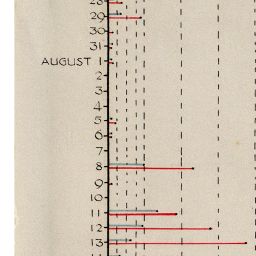 28
29
30
31
AUGUST 1
2
3
4
5
6
7
8
9
10
11
12
13